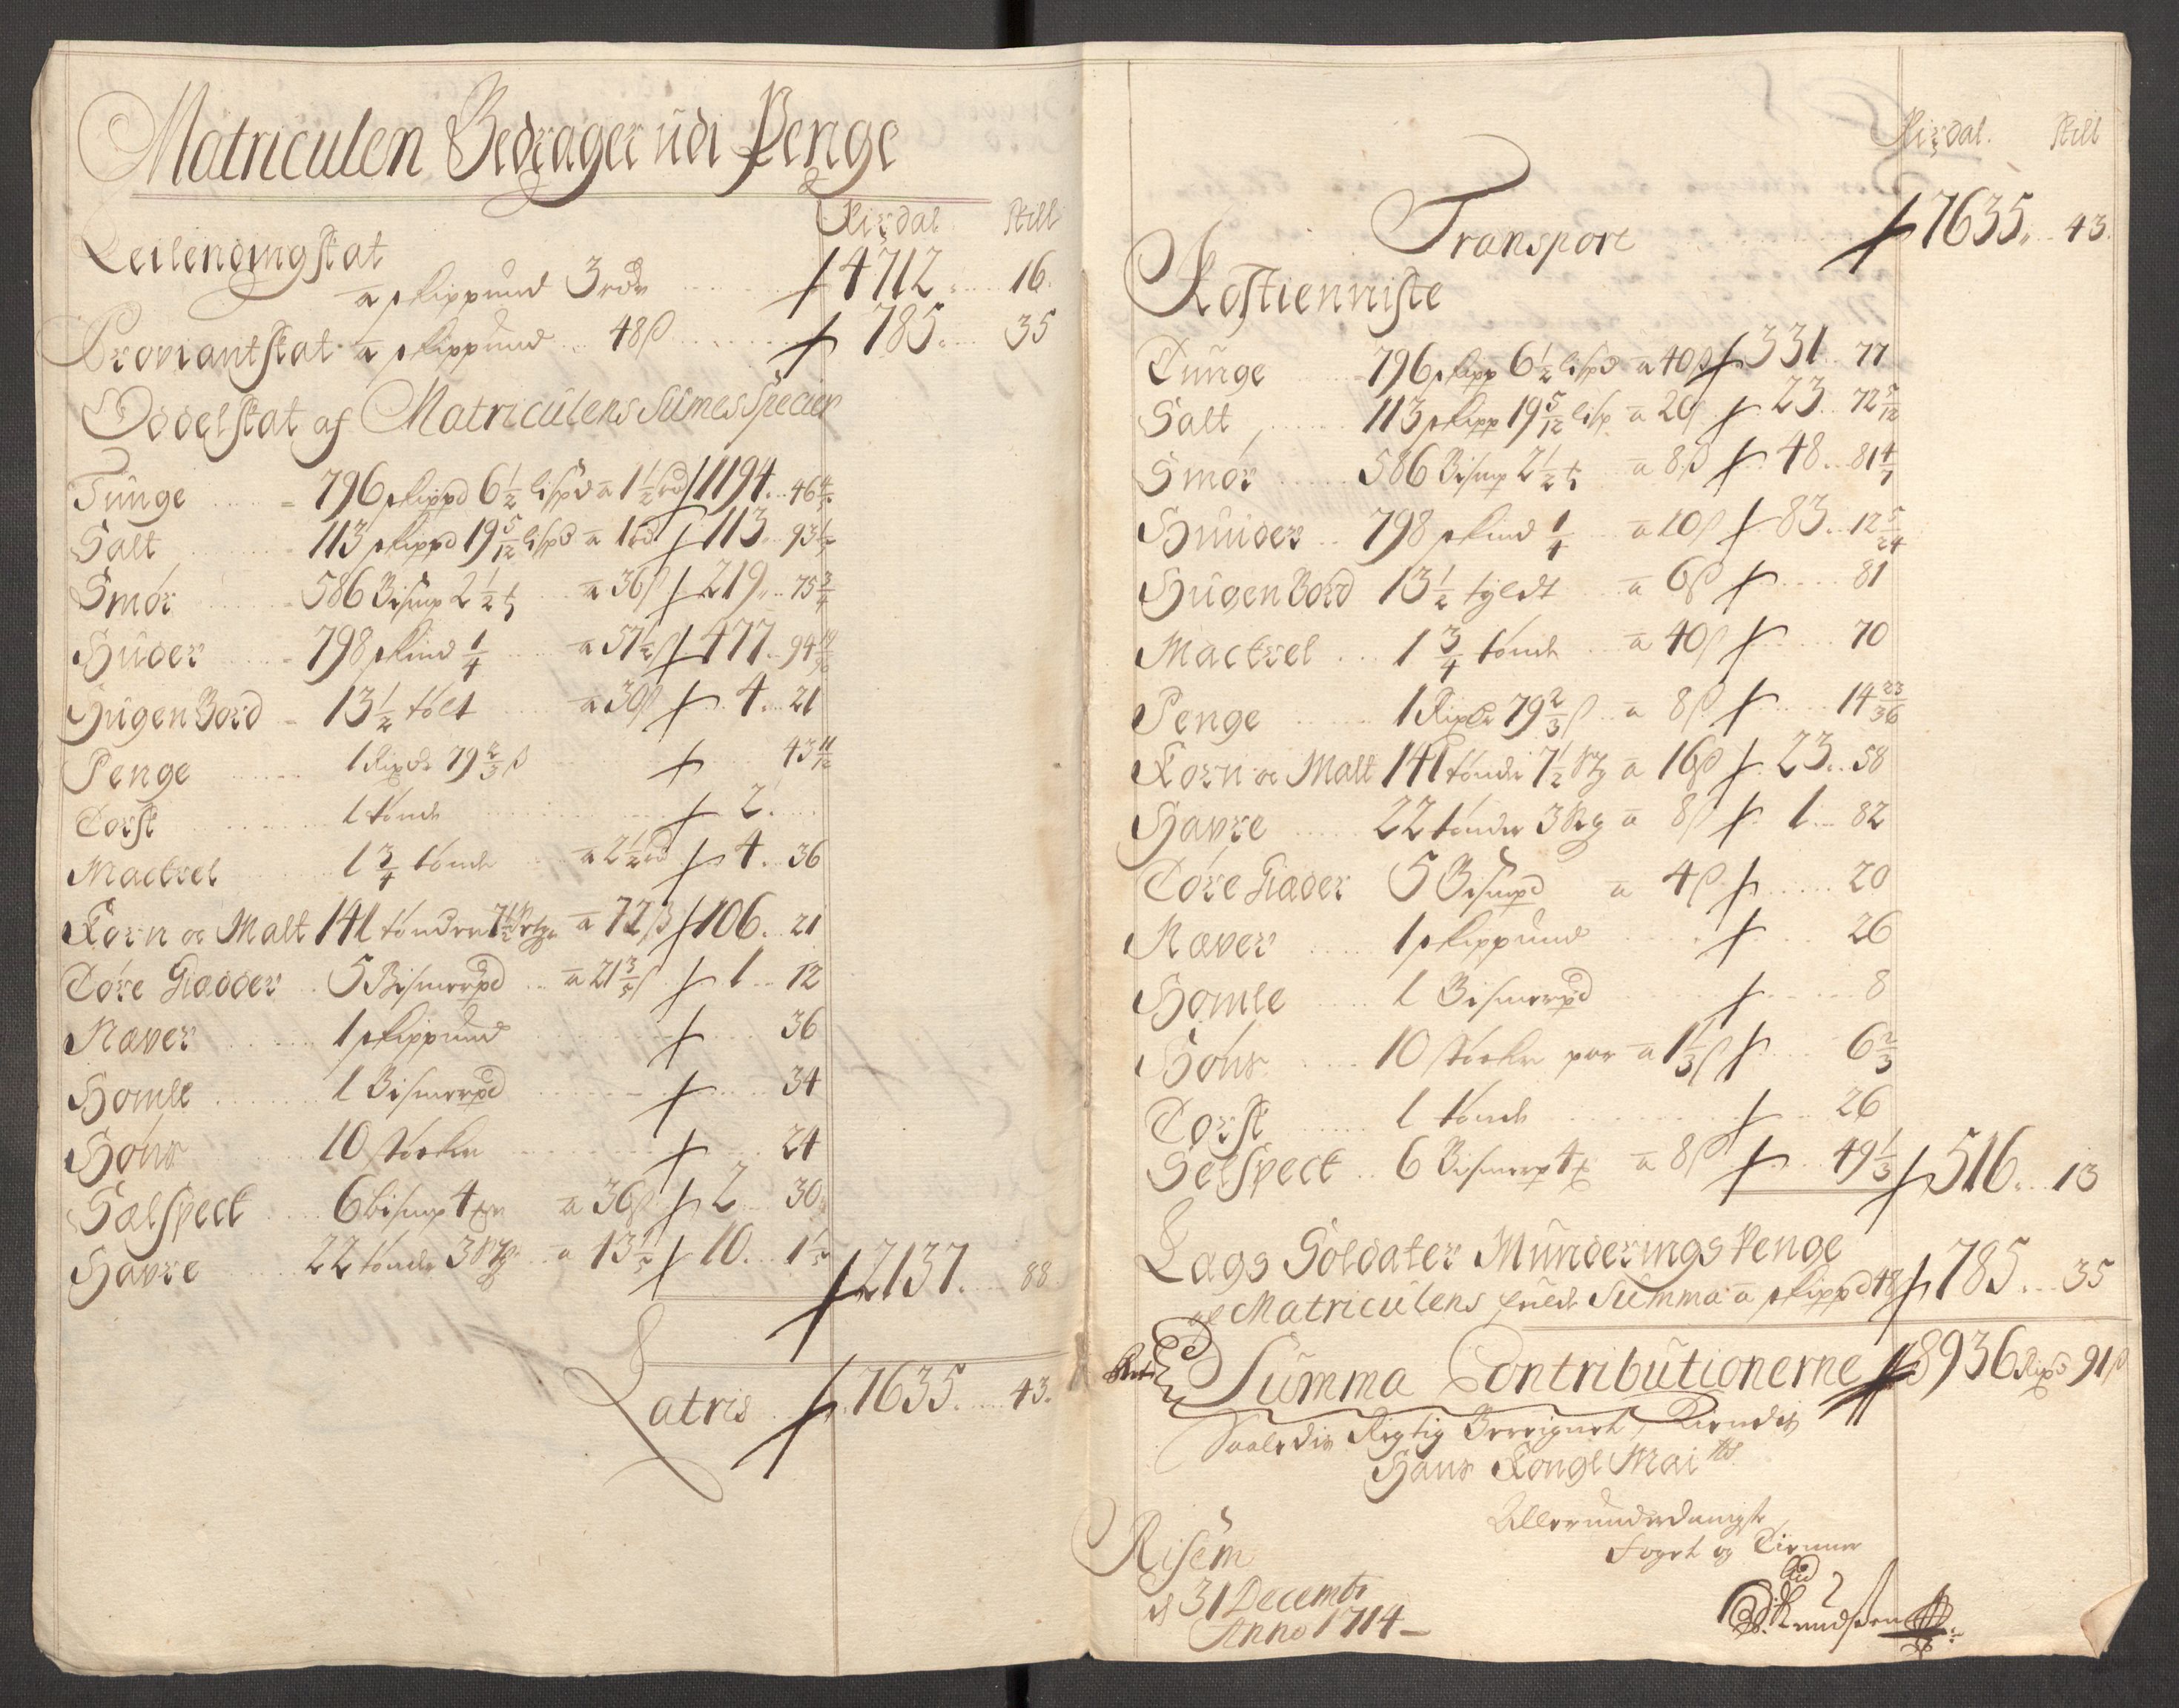 Matriculen Bedrager udi Penge
Rixdal Skill
Leilendingskat
a skippund 3 rdr 4712 16
Proviantskat a skippund 48ß 785 35
Oddelskat af Matriculens Sumes Specier
Tunge 796 skippd 6 1/2 lispd a 1 1/2 rd 1194 46 4/5
Salt 113 skippd 19 5/12 lispd a 1 rd 113 93 1/5
Smör 586 Bismp 2 1/2 a 36ß 219 75 3/4
Huder 798 skind 1/4 a 57 1/2 ß 477 94
Hugen Bord 13 1/2 tolt a 30ß 4 21
Penge 1 Rixdr 79 2/3 ß 43 11/12
Torsk 1 tönde 2
Mackrel 1 3/4 tönde a 2 1/2 rd 4 36
Korn oc Malt 141 tönder 7 1/2 a 72ß 106 21
Töre Giædder 5 Bismerpd a 21 3/5 ß 1 12
Næver 1 skippund 36
Homle 1 Bismerpd 34
Höns 10 stöcker 24
Sælspect 6 bismp 4 a 36ß 2 30
Havre 22 tönder 3 a 13 1/5 10 1 1/5
2137 88
Latris 7635 43
Rixdal. Skill
Transport 7635 43
Kostienniste
Tunge 796 skipp 6 1/2 lispd a 40ß 331 77
Salt 113 skipp 19 5/12 lisp a 20ß 23 72 5/12
Smör 586 Bismp 2 1/2 a 8ß 48 81 4/7
Huuder 798 skind 1/4 a 10ß 83 12 5/24
Hugen Bord 13 1/2 tyldt a 6ß 81
Mackrel 1 3/4 tönde a 40ß 70
Penge 1 Rixdr 79 2/3 ß a 8ß 14 23/36
Korn oc Malt 141 tönder 7 1/2 a 16ß 23 58
Havre 22 tönder 3 a 8ß 1 82
Töre Giæder 5 Bismpd a 4ß 20
Næver 1 skippund 26
Homle 1 Bismerpd 8
Höns 10 stöcker par a 1 1/3 ß 6 2/3
Torsk 1 tönde 26
Selspect 6 Bismerp 4 a 8ß 49 1/3 516 13
Lags Soldater Munderings Penge
af Matriculens fulde Summa a skippd 48ß 785 35
Summa Contributionerne 8936 Rixd 91ß
Saaledis Rigtig Bereignet, Kiendis
Hans Kongl Maits
Allerunderdanigste
Foget og Tienner
Risem
d 31 Decembr
Anno 1714
Knudsen